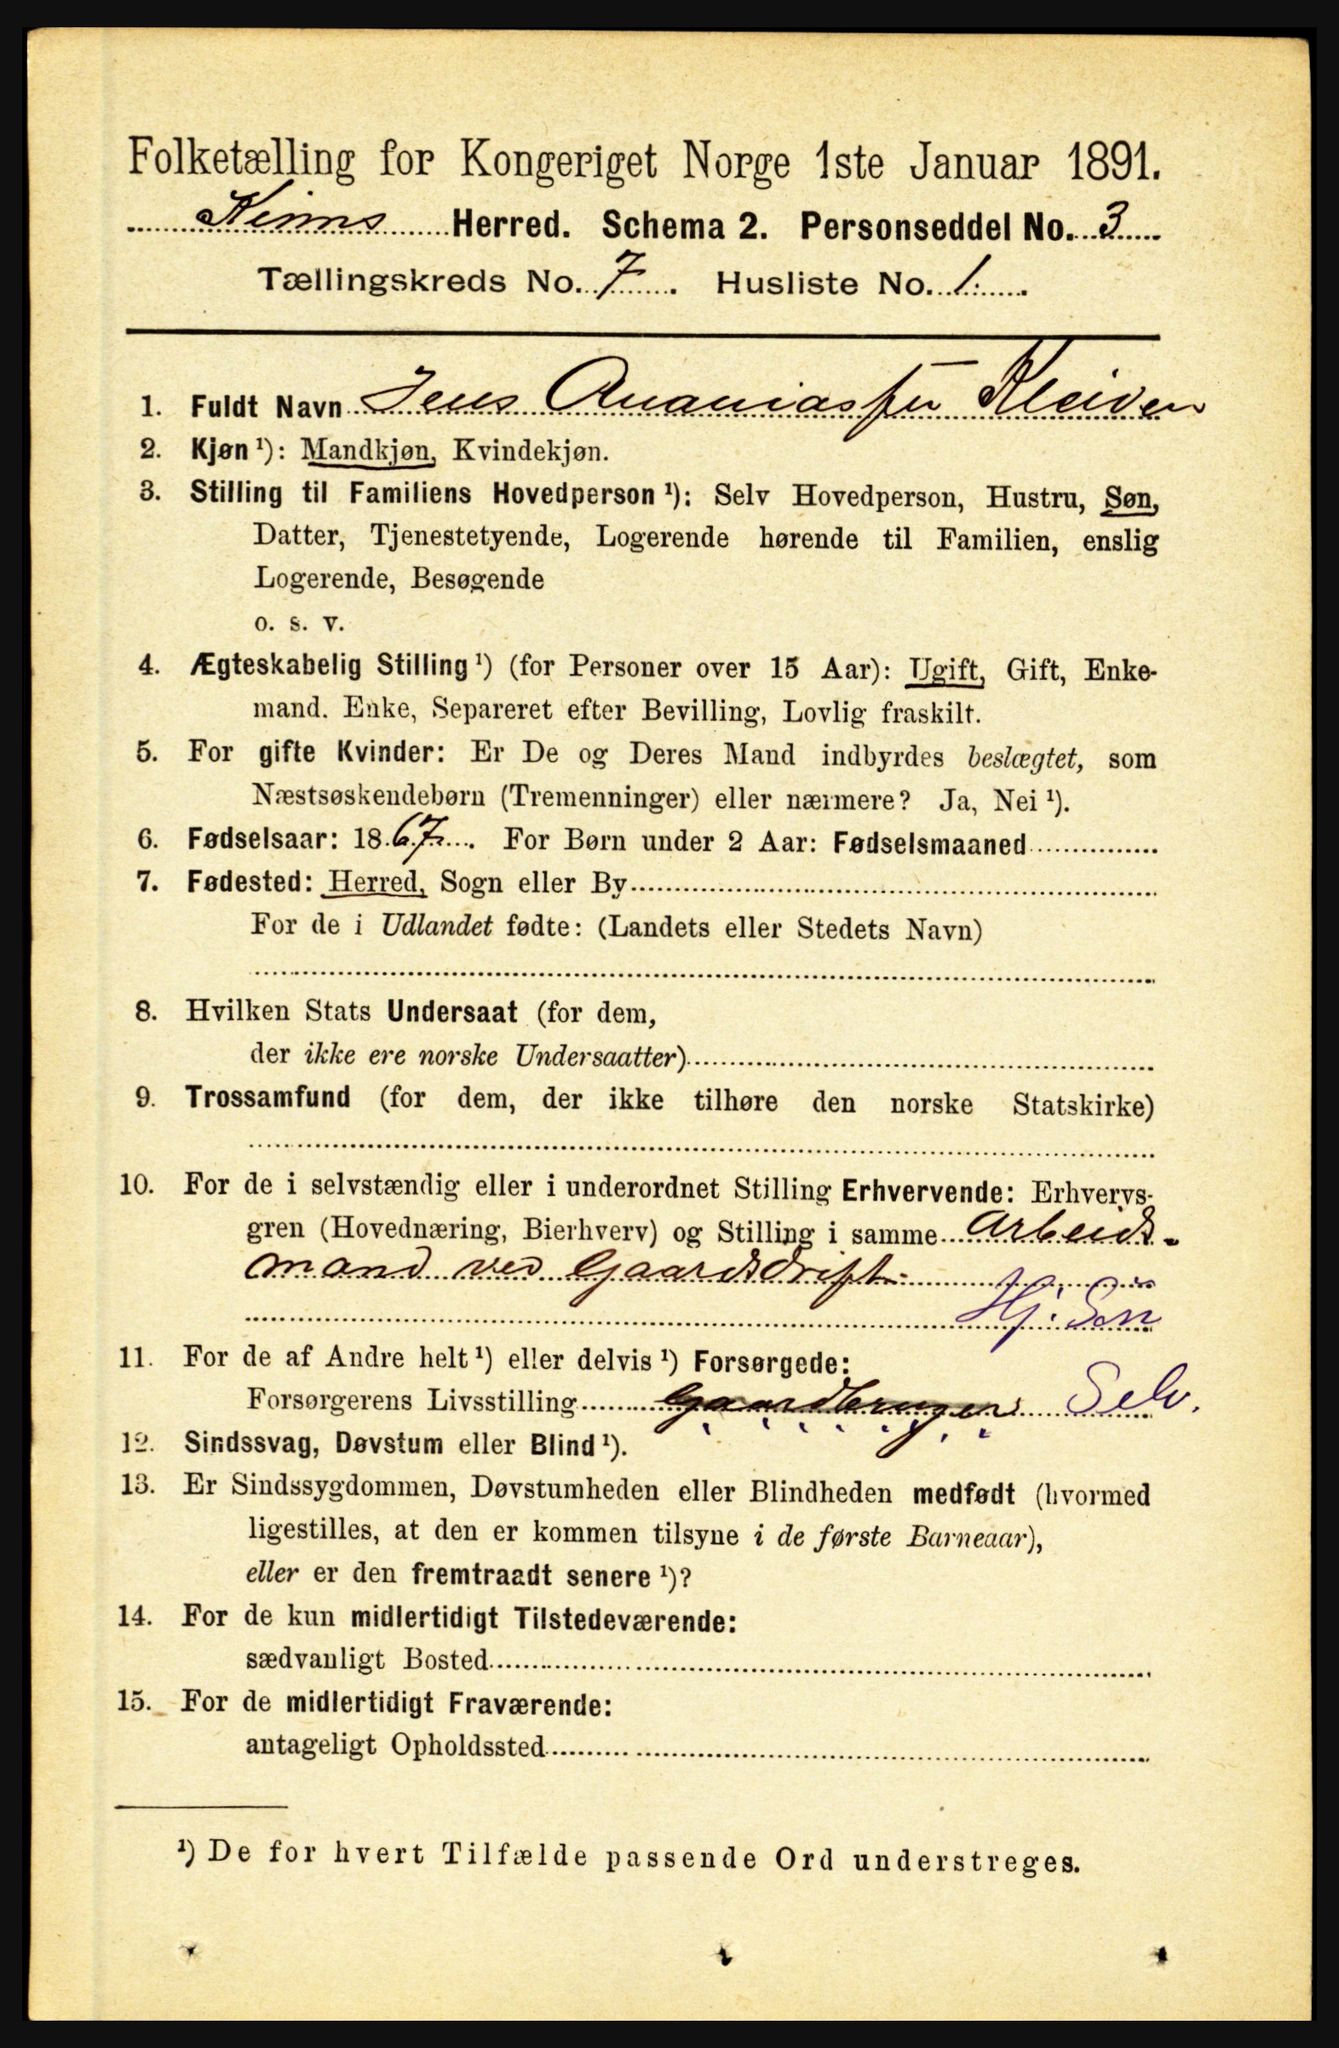 Folketælling for Kongeriget Norge 1ste Januar 1891.
Kinns Herred. Schema 2. Personseddel No. 3
Tællingskreds No. 7. Husliste No. 1.
1. Fuldt Navn Jens Ananiassen Kleiven
2. Kjøn ¹): Mandkjøn, Kvindekjøn.
3. Stilling til Familiens Hovedperson ¹): Selv Hovedperson, Hustru, Søn,
Datter, Tjenestetyende, Logerende hørende til Familien, enslig
Logerende, Besøgende
o. s. v.
4. Ægteskabelig Stilling ¹) (for Personer over 15 Aar): Ugift, Gift, Enke-
mand. Enke, Separeret efter Bevilling, Lovlig fraskilt.
5. For gifte Kvinder: Er De og Deres Mand indbyrdes beslægtet, som
Næstsøskendebørn (Tremenninger) eller nærmere? Ja, Nei ¹).
6. Fødselsaar: 1867. For Børn under 2 Aar: Fødselsmaaned
7. Fødested: Herred, Sogn eller By
For de i Udlandet fødte: (Landets eller Stedets Navn)
8. Hvilken Stats Undersaat (for dem,
der ikke ere norske Undersaatter)
9. Trossamfund (for dem, der ikke tilhøre den norske Statskirke)
10. For de i selvstændig eller i underordnet Stilling Erhvervende: Erhvervs-
gren (Hovednæring, Bierhverv) og Stilling i samme Arbeids-
mand ved Gaardsdrift
Hj. Søn
11. For de af Andre helt ¹) eller delvis ¹) Forsørgede:
Forsørgerens Livsstilling Gaardbruger Selv.
12. Sindssvag, Døvstum eller Blind ¹).
13. Er Sindssygdommen, Døvstumheden eller Blindheden medfødt (hvormed
ligestilles, at den er kommen tilsyne i de første Barneaar),
eller er den fremtraadt senere ¹)?
14. For de kun midlertidigt Tilstedeværende:
sædvanligt Bosted
15. For de midlertidigt Fraværende:
antageligt Opholdssted
¹) De for hvert Tilfælde passende Ord understreges.